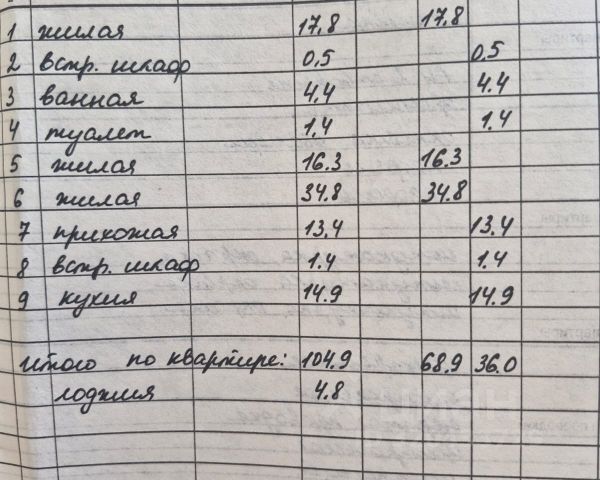 1 жилая 17,8 17,8
2 встр. шкаф 0,5 0.5
3 ванная 4,4 4.4
4 туалет 1.4 1.4
5 жилая 16.3 16.3
6 жилая 34.8 34.8
7 прихожая 13,4 13.4
8 встр. шкаф 1.4 1.4
9 кухня 14.9 14.9
итого по квартире: 104.9 68.9 36.0
лоджия 4.8